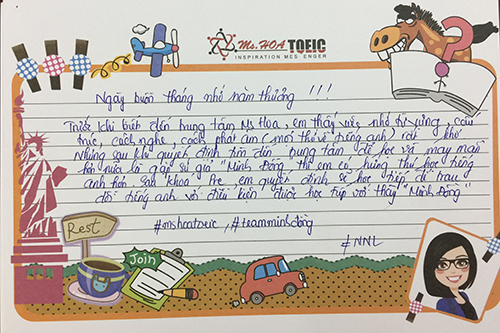 Ms.HOA TOEIC
INSPIRATION MESSENGER
Ngày buồn tháng nhớ năm thương !!!
Trước khi biết đến trung tâm Ms Hoa, em thấy việc nhớ từ vựng, cấu
trúc, cách nghe, cách phát âm (mọi thứ về tiếng anh) rất khó
Nhưng sau khi quyết định tìm đến trung tâm để học và may mắn
hơn nữa là gặp sứ giả "Minh Đăng" thì em có hứng thú học tiếng
anh hơn. Sau khoá Pre, em quyết định sẽ học tiếp để trau
dồi tiếng anh với điều kiện được học tiếp với thầy "Minh Đăng"
#mshoatoeic, #teamminhđăng
#NNL
Rest
Join